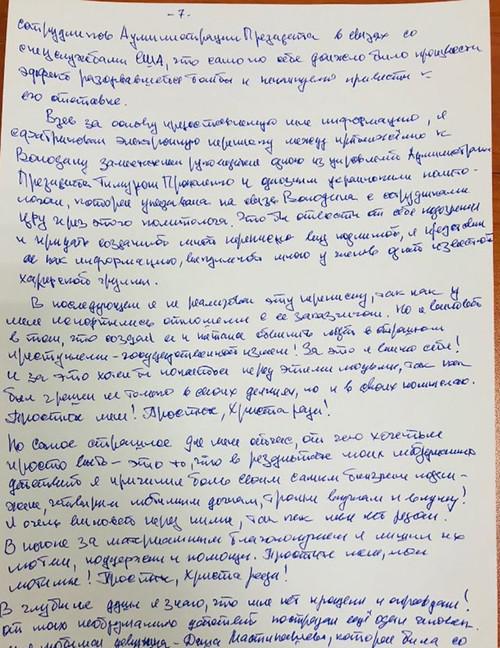 - 7 -
сотрудников Администрации Президента в связях со
спецслужбами США, что само по себе должно было произвести
эффект разорвавшейся бомбы и неминуемо привести к
его отставке.
Взяв за основу предоставленную мне информацию, я
сфабриковал электронную переписку между приближённым к
Володину заместителем руководителя одного из управлений Администрации
Президента Тимуром Прокопенко и одиозным украинским полито-
логом, которая указывала на связь Володина с сотрудниками
ЦРУ через этого политолога. Что бы отвести от себя подозрения
и придать созданной мной переписке вид подлинной, я представил
ее как информацию, полученную мною у членов одной известной
хакерской группы.
В последующем я не реализовал эту переписку, так как у
меня испортились отношения с ее заказчиком. Но я виноват
в том, что создал ее и пытался обвинить людей в страшном
преступлении - государственной измене! За это я виню себя!
И за это хочется покаяться перед этими людьми, так как
был грешен не только в своих деяниях, но и в своих помыслах.
Простите меня! Простите, Христа ради!
Но самое страшное для меня сейчас, от чего хочется
просто выть - это то, что в результате моих необдуманных
действий я причинил боль своим самым близким людям -
жене, четверым любимым дочкам, троим внукам и внучку!
Я очень виноват перед ними, так как меня нет рядом.
В погоне за материальным благополучием я лишил их
любви, поддержки и помощи. Простите меня, мои
любимые! Простите, Христа ради!
В глубине души я знаю, что мне нет прощения и оправдания!
От моих необдуманно действий пострадал ещё один человек.
любимая девушка - Даша, которая была со